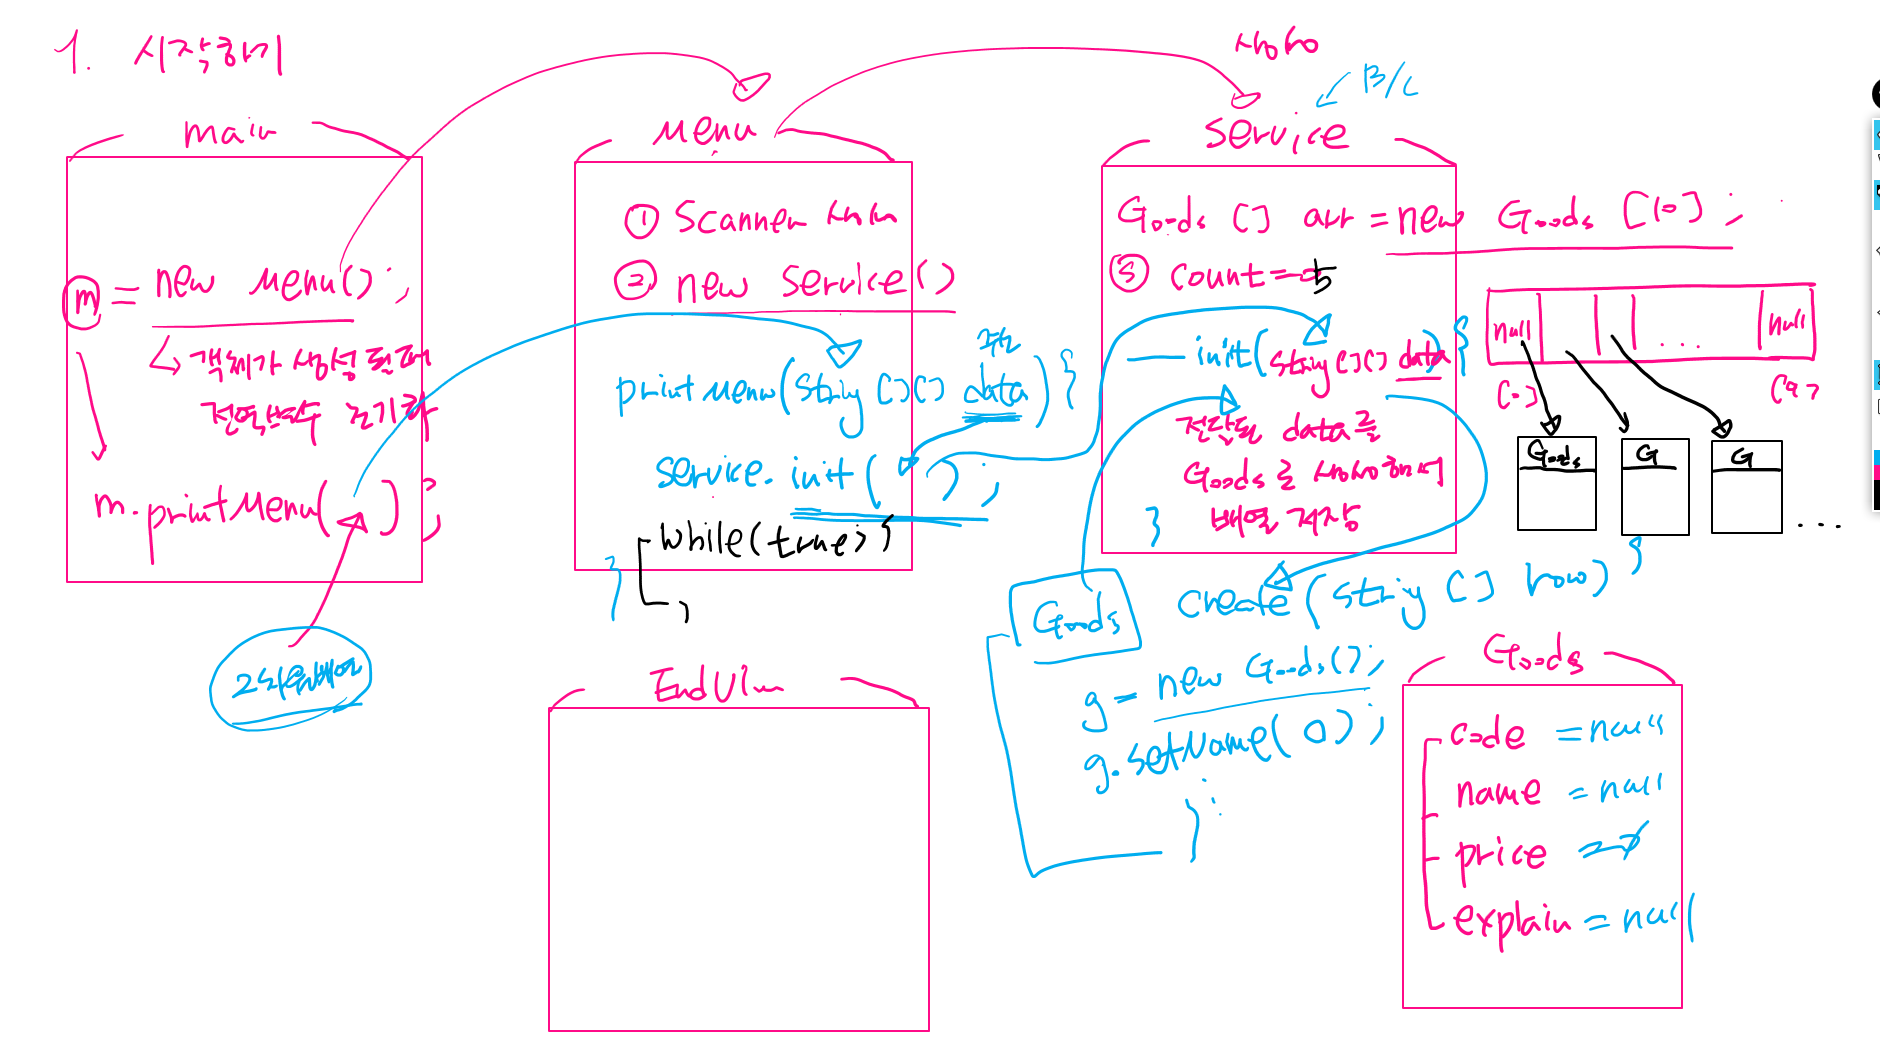 1. 시작하기
main
m = new Menu();
↳ 객체가 생성 될때
전역변수 초기화
m.printMenu( );
2차원배열
Menu
① Scanner 생성
② new Service()
printMenu(String[][] data) {
service.init( );
while(true) {
}
}
EndView
생성
B/L
Service
Goods [] arr = new Goods [10];
③ count = 5
init(String[][] data) {
전달된 data를
Goods로 생성해서
배열 저장
}
null
...
null
[0]
[9]
Goods
G
G
...
Goods
create(String [] row) {
g = new Goods();
g.setName(0);
:
}
Goods
code = null
name = null
price = 0
explain = null